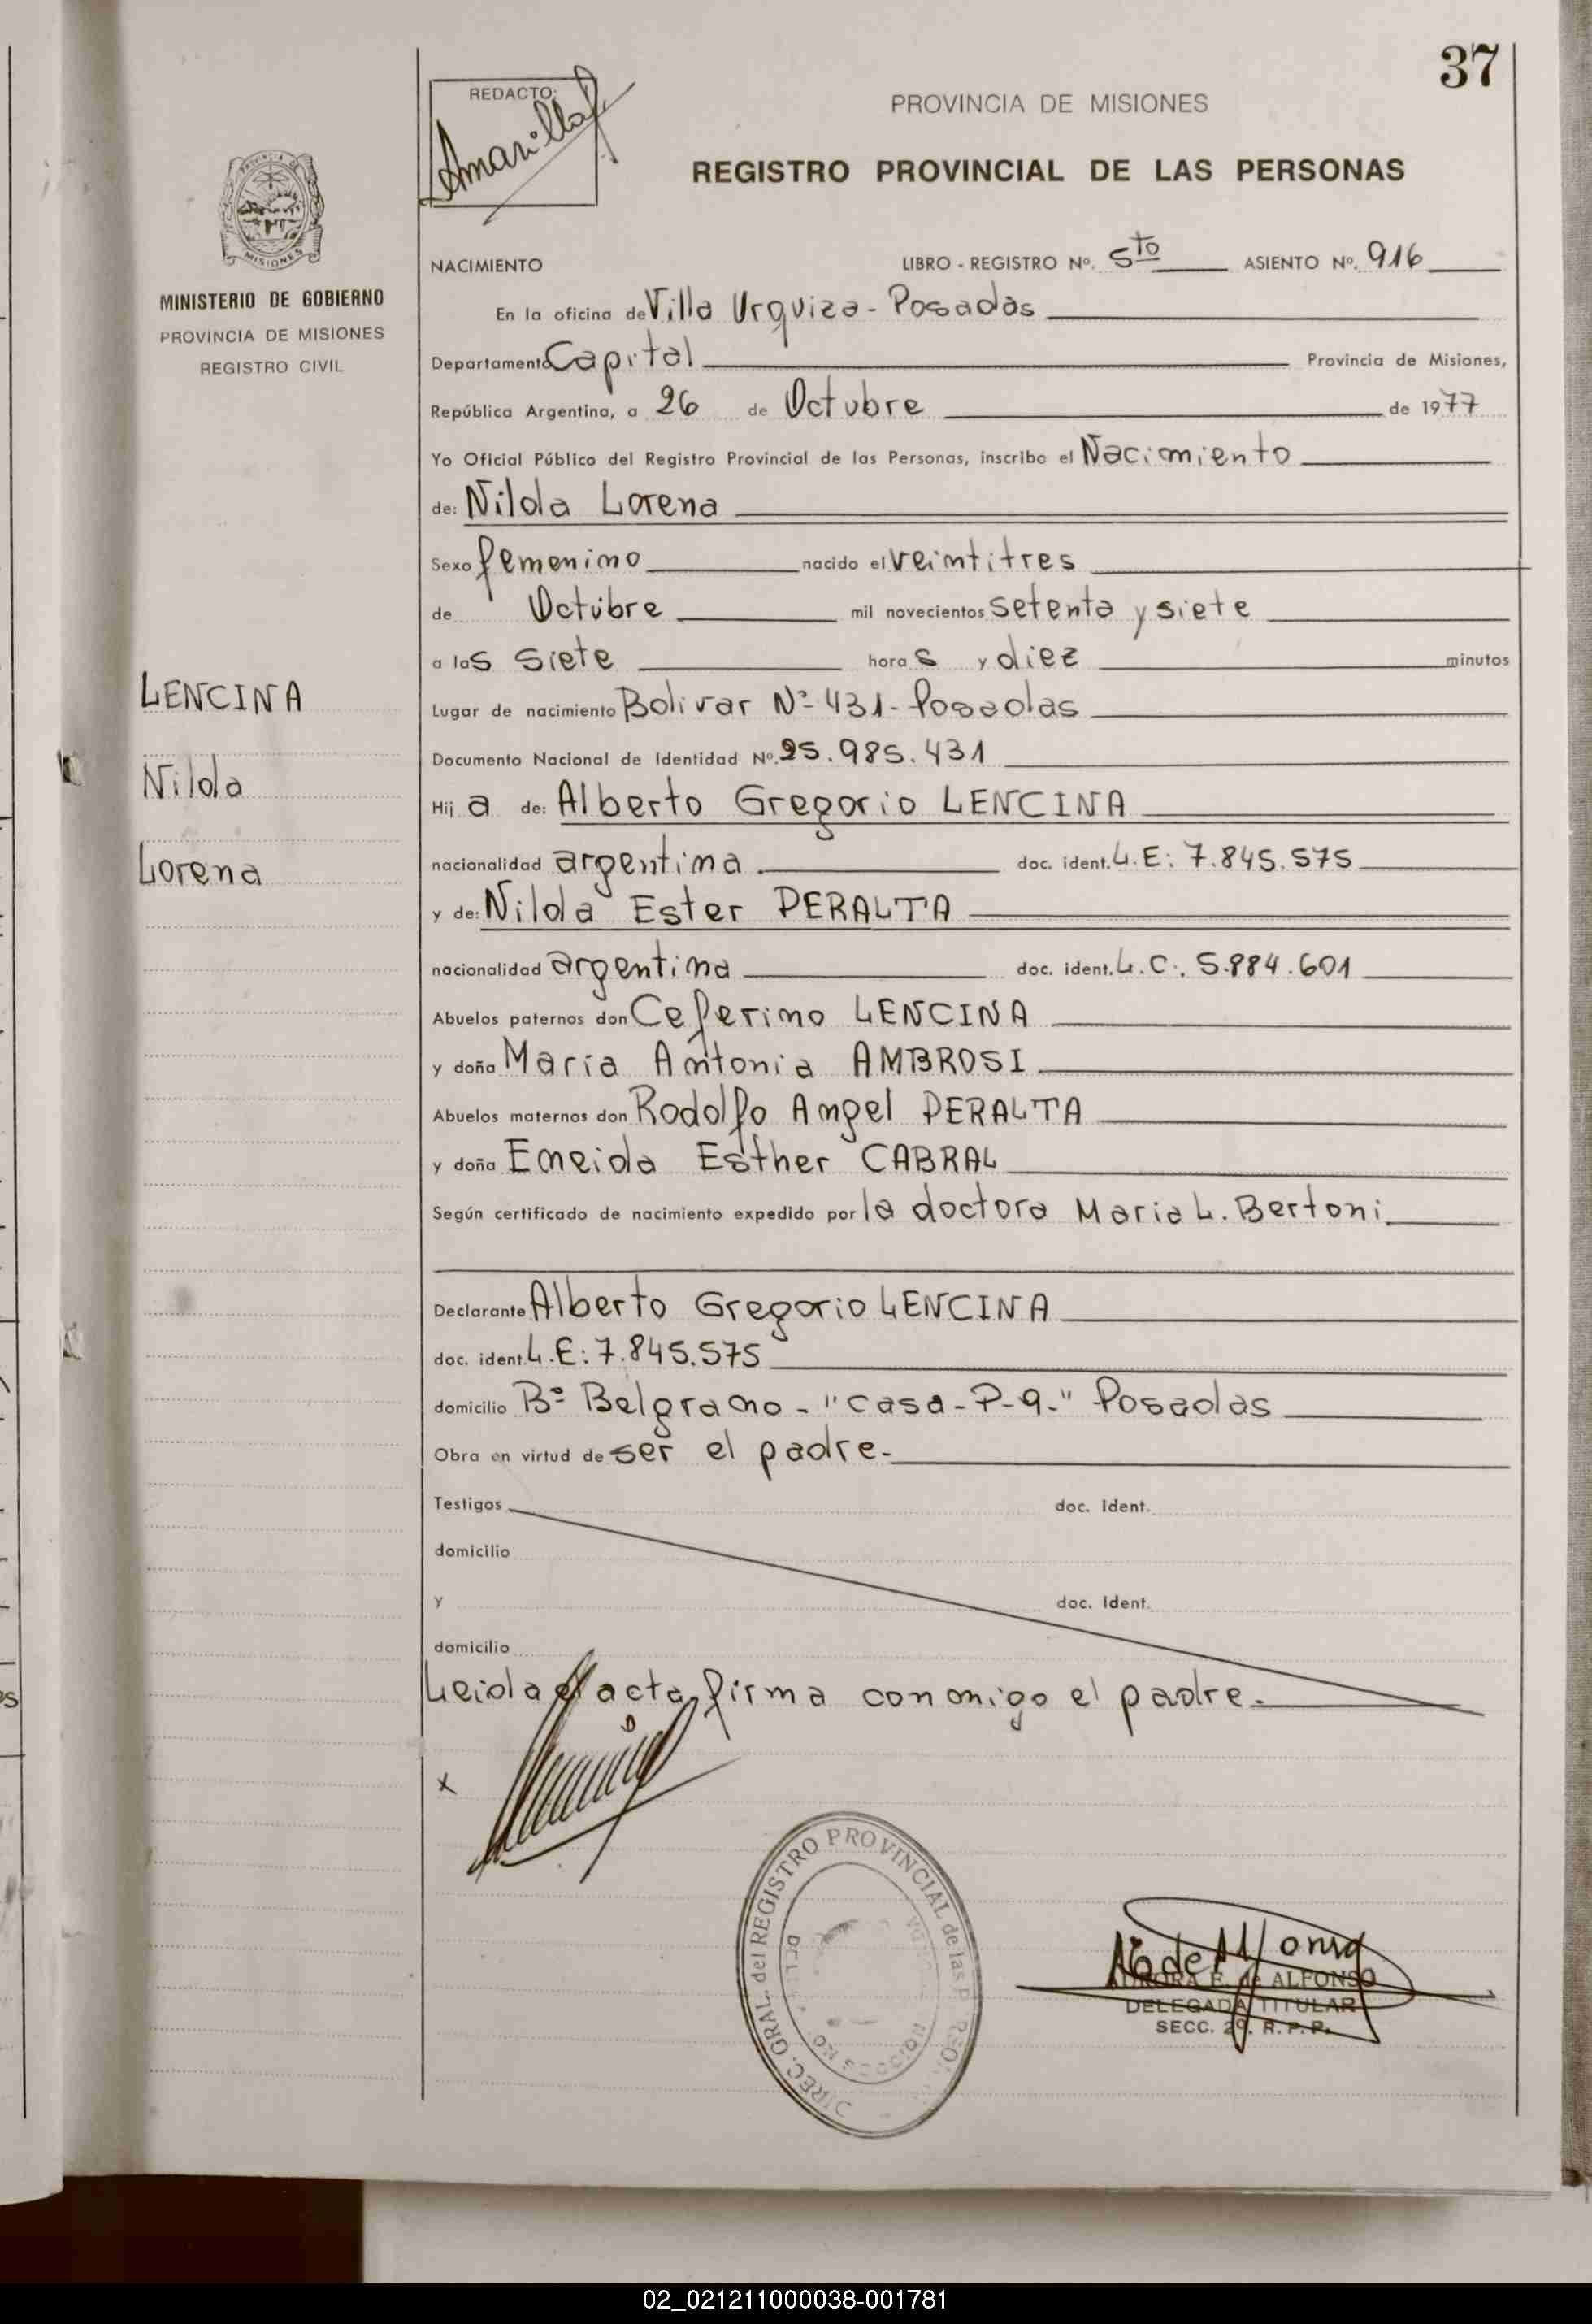 37
REDACTO:
Amarilla
PROVINCIA DE MISIONES
REGISTRO PROVINCIAL DE LAS PERSONAS
MISIONES
MINISTERIO DE GOBIERNO
PROVINCIA DE MISIONES
REGISTRO CIVIL
NACIMIENTO LIBRO - REGISTRO Nº. 5to ASIENTO Nº. 916
En la oficina de Villa Urquiza - Posadas
Departamento Capital Provincia de Misiones,
República Argentina, a 26 de Octubre de 1977
Yo Oficial Público del Registro Provincial de las Personas, inscribo el Nacimiento
de: Nilda Lorena
Sexo femenino nacido el veintitres
de Octubre mil novecientos setenta y siete
a las siete horas y diez minutos
LENCINA
Nilda
Lorena
Lugar de nacimiento Bolivar Nº 431 - Posadas
Documento Nacional de Identidad Nº. 25.985.431
Hija de: Alberto Gregorio LENCINA
nacionalidad argentina doc. ident. L.E: 7.845.575
y de: Nilda Ester PERALTA
nacionalidad argentina doc. ident. L.C: 5.884.601
Abuelos paternos don Ceferino LENCINA
y doña María Antonia AMBROSI
Abuelos maternos don Rodolfo Angel PERALTA
y doña Eneida Esther CABRAL
Según certificado de nacimiento expedido por la doctora Maria L. Bertoni.
Declarante Alberto Gregorio LENCINA
doc. ident. L.E: 7.845.575
domicilio Bº Belgrano - "casa - P-9-" Posadas
Obra en virtud de ser el padre.-
Testigos doc. Ident.
domicilio
y doc. Ident.
domicilio
Leida el acta, firma conmigo el padre.-
x
DIREC. GRAL. del REGISTRO PROVINCIAL de las
AURORA E. de ALFONSO
DELEGADA TITULAR
SECC. 2º. R.P.P.
02_021211000038-001781